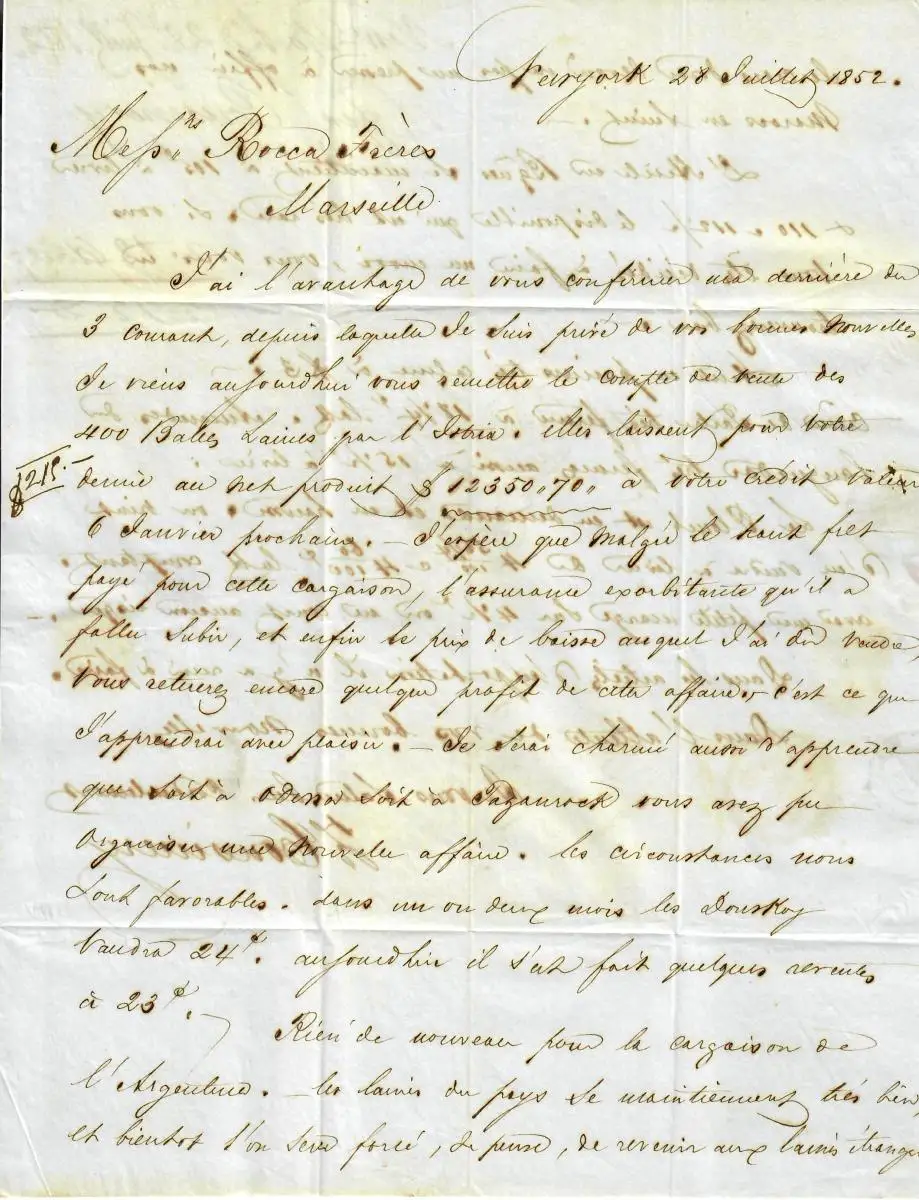 Newyork 28 Juillet 1852.
Mess.rs Rocca Frères
Marseille
J'ai l'avantage de vous confirmer ma dernière du
3 courant, depuis laquelle Je suis privé de vos bonnes nouvelles
Je viens aujourdhui vous remettre le compte de vente des
400 Balles Laines par l'Istria. elles laissent pour votre
$215.-
demie au net produit $ 12350"70" à votre crédit valeur
6 Janvier prochain. — J'espère que malgré le haut fret
payé pour cette cargaison, l'assurance exorbitante qu'il a
fallu subir, et enfin le prix de baisse auquel J'ai du vendre,
vous retirerez encore quelque profit de cette affaire, c'est ce que
J'apprendrai avec plaisir. — Je serai charmé aussi d'apprendre
que soit à Odessa soit à Taganrock vous avez pu
organiser une nouvelle affaire. les circonstances nous
sont favorables. dans un ou deux mois les Donskoy
vaudra 24¢. aujourdhui il s'est fait quelques reventes
à 23¢.
Rien de nouveau pour la cargaison de
l'Argentina. — les laines du pays se maintiennent très bien,
et bientot l'on sera forcé, Je pense, de revenir aux laines